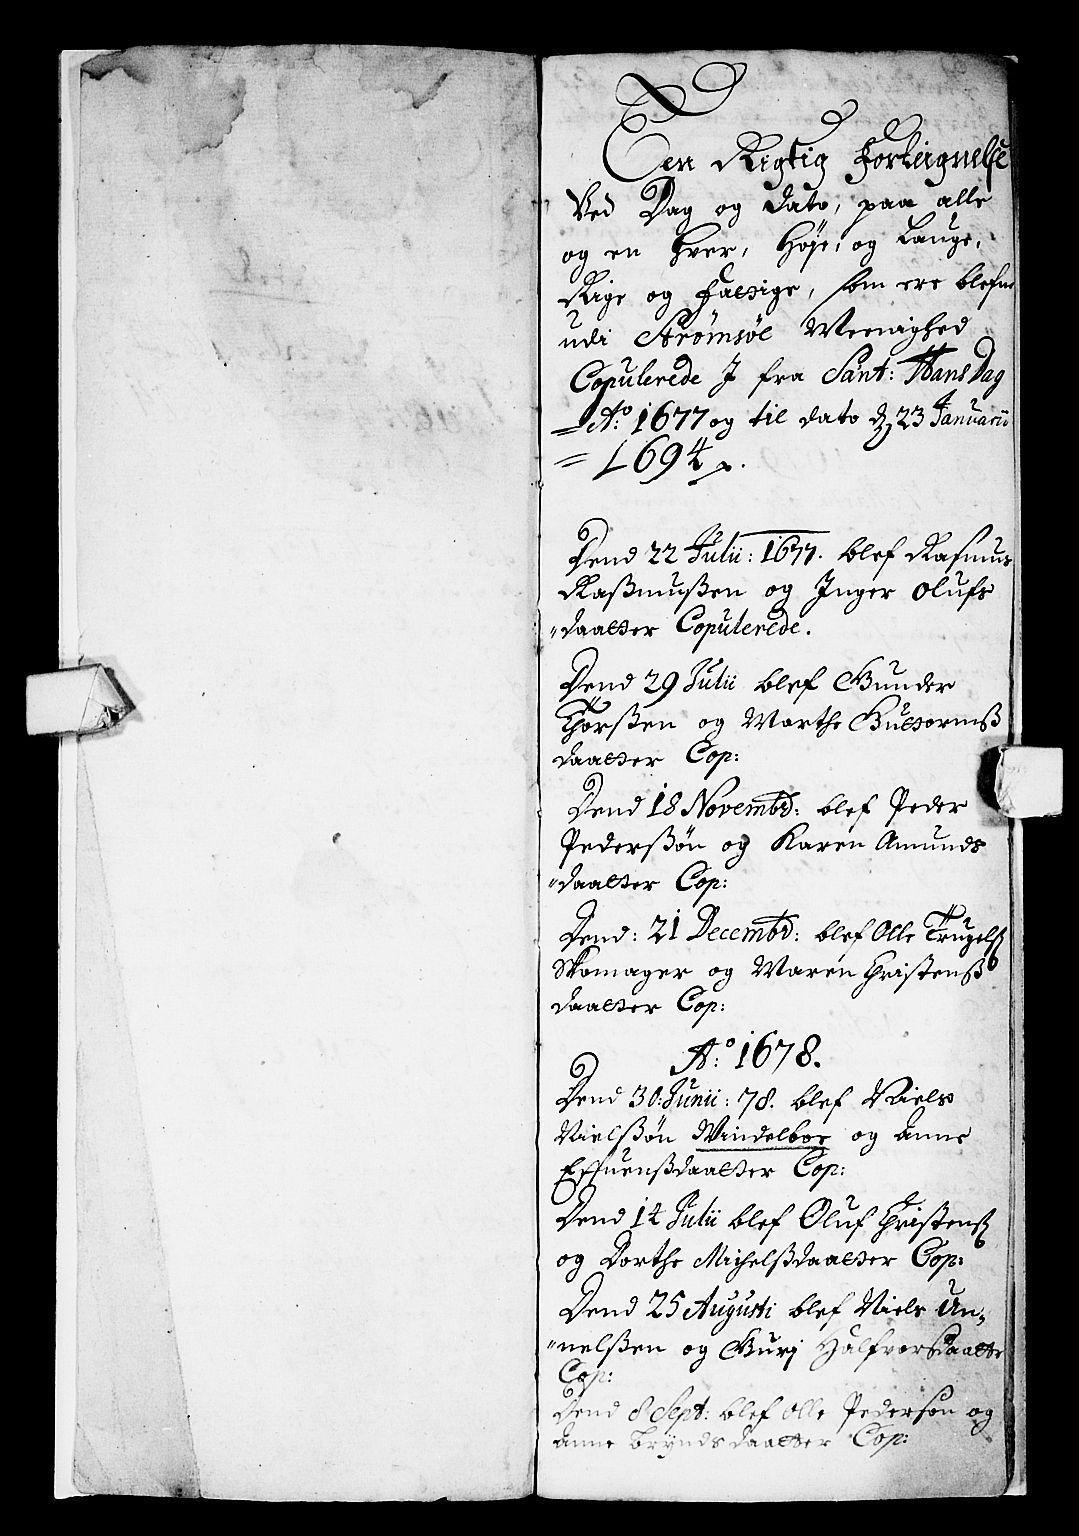 Een Rigtig Forteignelse
Ved Dag og dato, paa alle
og en hver, Høje, og Lauge,
Rige og Fattige, som ere blefne
udi Strømsøe Meenighed
Copulerede J fra Sanct: Hans Dag
= A:o 1677 og til dato d, 23 Januarii
= 1694.
Dend 22 Julii: 1677. blef Rasmus
Raßmußen og Inger Olufs
"daatter Copulerede.
Dend 29 Julii blef Gunder
Thorßen og Marthe Guttormß
daatter Cop:
Dend 18 Novembr: blef Peder
Pederßøn og Karen Amunds
"daatter Cop:
Dend: 21 Decembr: blef Olle Trugelß
Skomager og Maren Christenß
daatter Cop:
A:o 1678.
Dend 30: Junii: 78. blef Niels
Nielßøn Windelboe og Anne
daatter Cop:
Dend 14 Julii blef Oluf Christenß
og Dorthe Michelßdaatter Cop:
Dend 25 Augusti blef Niels Un=
"nelßen og Gurj Halfvorsdaatter
Cop:
Dend 8 Sept: blef Olle Pedersøn og
Anne Brynds daatter Cop: